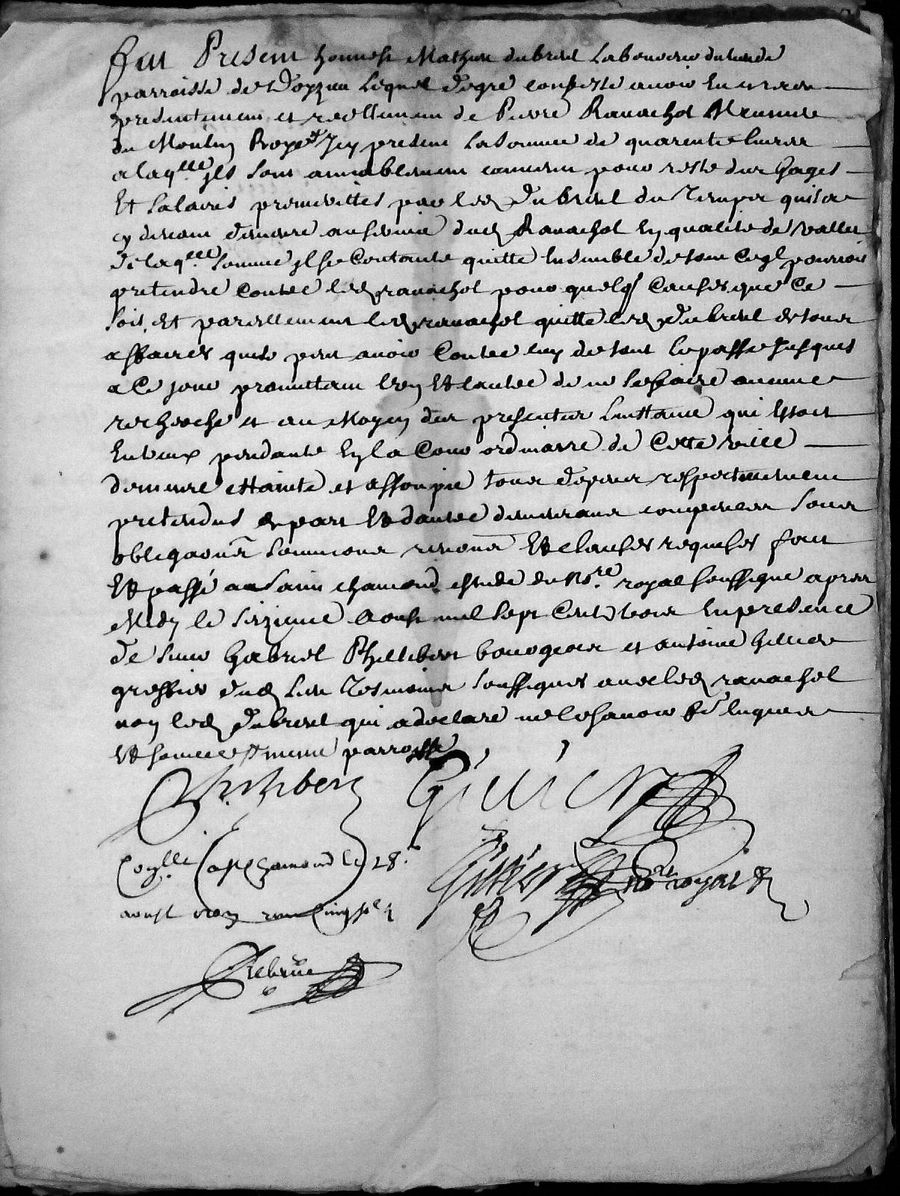 fut Present honneste Mathieu dubreul Laboureur du lieu de
parroisse de Doyzieu Lequel de gré confesse avoir heu et receu
presentement et reellement de Pierre Ranachol Meunier
du Moulin Icy present La somme de quarente livres
a laqlle Ils sont amiablement convenu pour reste des Gages
Et Salairis promerittes par led dubreul du Temps quil a
cy devant demeuré au service dud Ranachol En qualité de vallet
de laqlle somme Il se contante quitte Ensemble de tout ce quil pourroit
pretendre contre led ranachol pour quelq causes que ce
soit, Et pareillement led ranachol quitte led dubreul de tous
affaires quil peut avoir contre luy de tout le passé Jusques
a Ce jour promettant lun Et lautre de ne se faire aucune
recherche et au Moyen des presentes Linstance qui Estoit
Entreux pendante En la Cour ordinaire de Cette ville
demeure estainte et assoupie tous depens respectivement
pretendus de part Et dautre demeurans compensés sous
obligaons soumissions renons Et clauses requises fait
Et passé au Saint chamond estude du Nore royal soussigné apres
Midy le sixieme Aoust mil sept Cent trois En presence
de sieur Gabriel Philibert bourgeois et antoine Gillier
greffier dud Lieu Tesmoins soussignés avec led ranachol
non led dubreul qui a declaré ne le scavoir de ce Enquis
Et
Philibert Gillier
Conllé a St chamond le 18e
aoust 1703 receu cinq sols
Gillier Nore royal
Lebrun